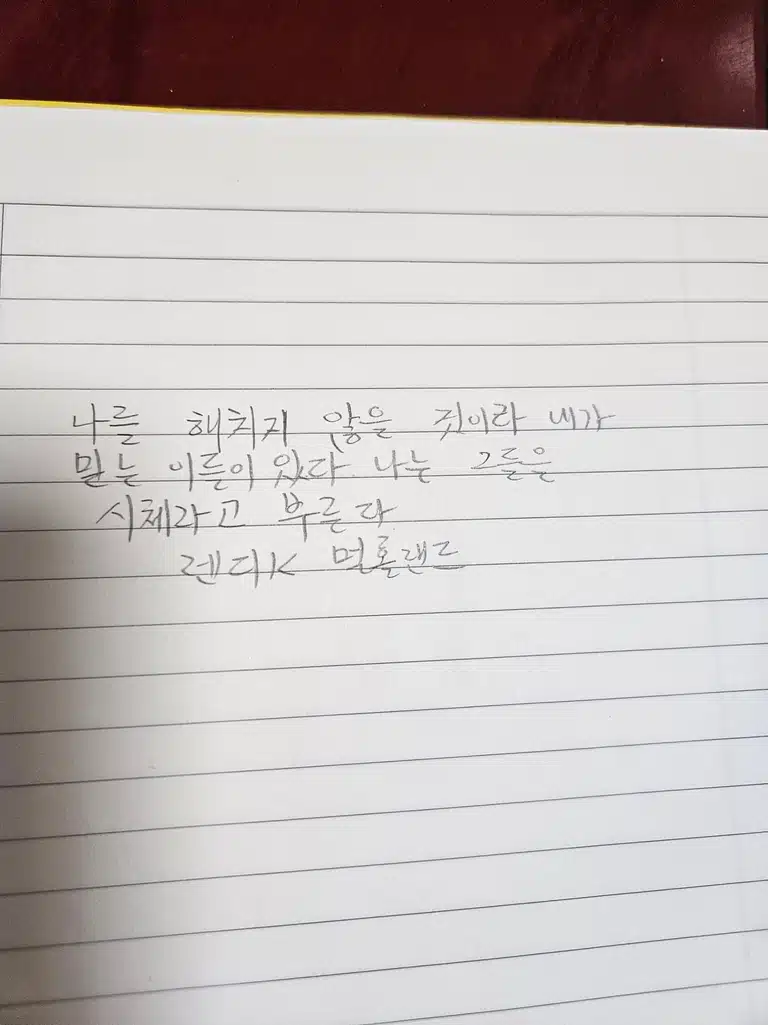 나를 해치지 않을 것이라 내가
믿는 이들이 있다. 나는 그들을
시체라고 부른다
렌디K 멀홀랜드